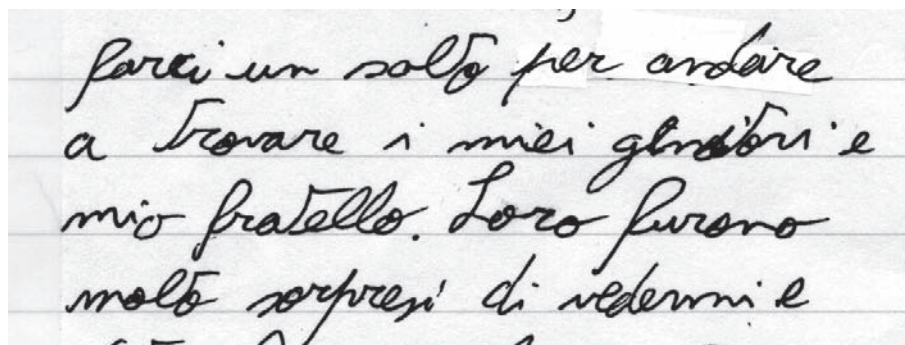 farci un salto per andare
a trovare i miei genitori e
mio fratello. Loro furono
molto sorpresi di vedermi e